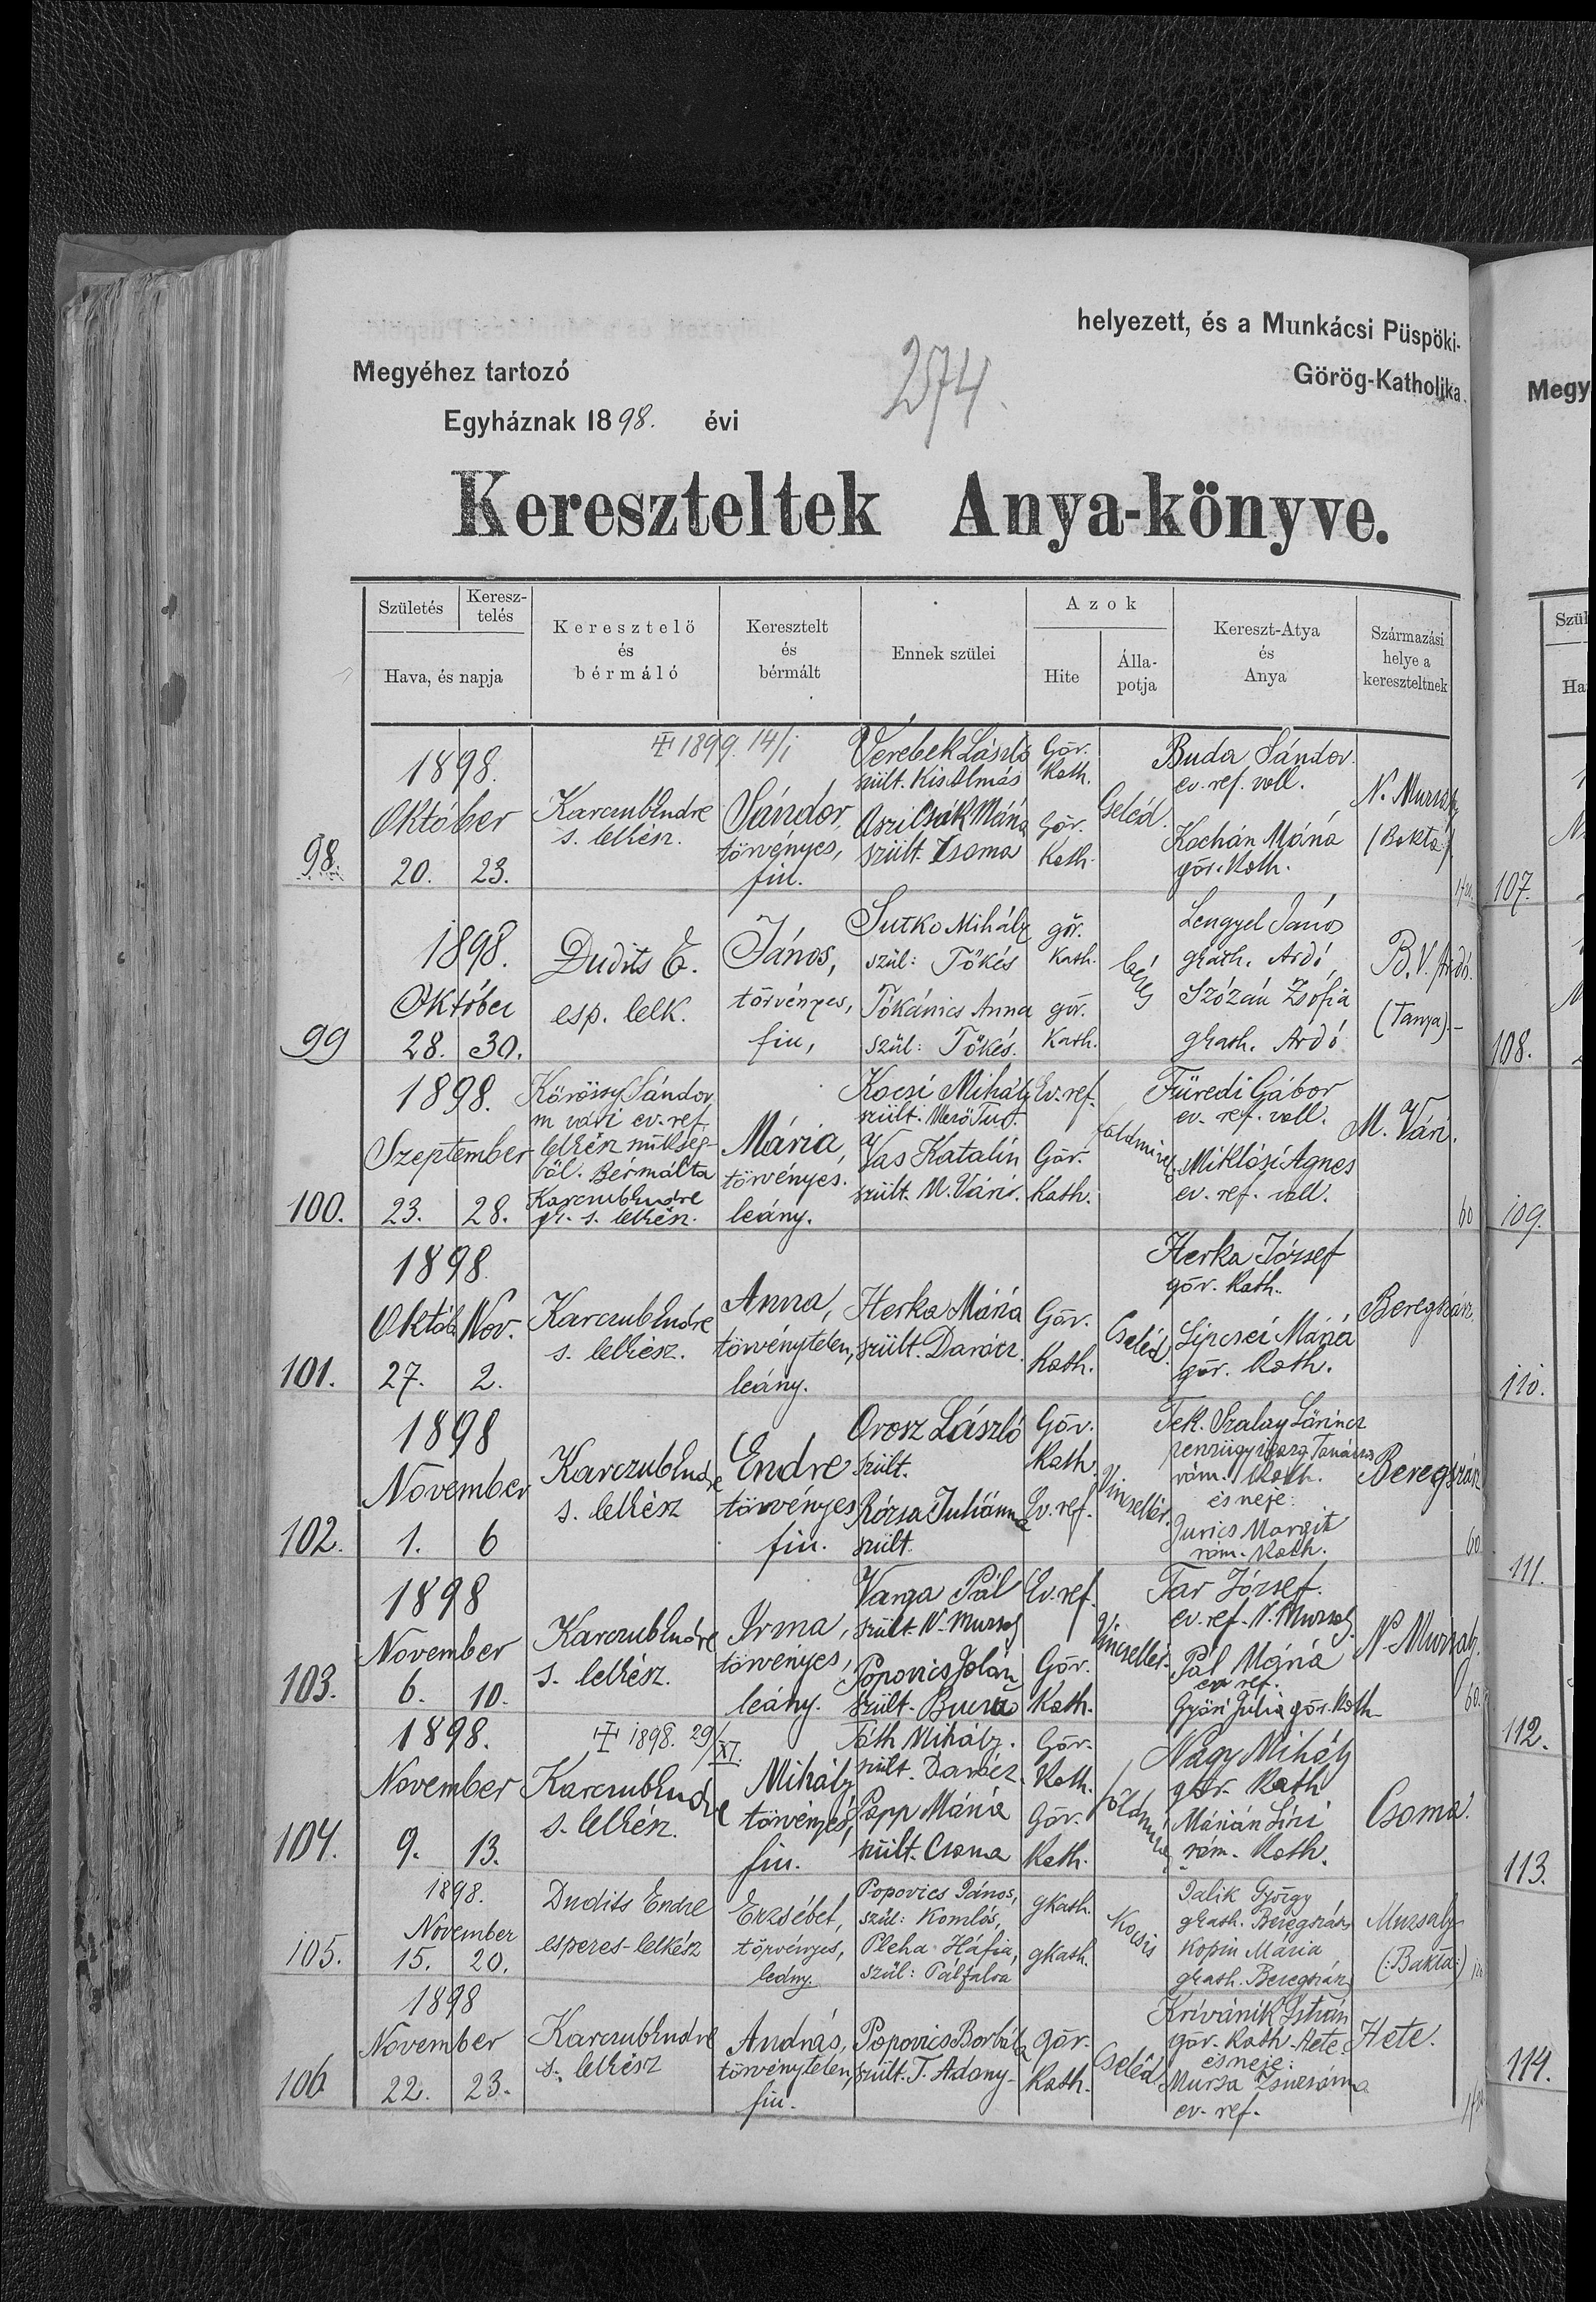 helyezett, és a Munkácsi Püspöki-
Megyéhez tartozó
Görög-Katholika
Egyháznak 1898. évi
274.
Kereszteltek Anya-könyve.
Születés
Keresz-
telés
Hava, és napja
Keresztelö
és
bérmáló
Keresztelt
és
bérmált
Ennek szülei
Azok
Hite
Álla-
potja
Kereszt-Atya
és
Anya
Származási
helye a
kereszteltnek
98.
1898.
Október
20. 23.
Karczub Endre
s. lelkész.
1899. 14/i
Sándor,
törvényes,
fiu.
Verebek László
szült. Kis Almás
Csák Mária
szült. Csoma
Gör.
Kath.
Gör.
Kath.
Cseléd.
Buda Sándor
ev. ref. vall.
Kachán Mária
gör. Kath.
N. Muzsaly
(Bakta)
99
1898.
Október
28. 30.
Dudits E.
esp. lelk.
János,
törvényes,
fiu,
Sutko Mihály
szül: Tőkés
Tókánics Anna
szül: Tőkés.
gör.
Kath.
gör.
Kath.
béres
Lengyel János
gkath. Ardó
Szózán Zsófia
gkath. Ardó
B. V. Ardó.
(Tanya).–
100.
1898.
Szeptember
23. 28.
Körössy Sándor
m vári ev. ref.
lelkész szükség-
ből. Bérmálta
Karczub Endre
gk. s. lelkész.
Mária,
törvényes.
leány.
Kocsi Mihály
szült.
Vas Katalin
szült. M. Vári.
Ev. ref.
Gör.
Kath.
földmives
Füredi Gábor
ev. ref. vall.
Miklósi Agnes
ev. ref. vall.
M. Vári.
60
101.
1898.
Októb. Nov.
27. 2.
Karczub Endre
s. lelkész.
Anna,
törvénytelen,
leány.
Herka Mária
szült. Darócz.
Gör.
Kath.
Cseléd.
Herka József
gör. Kath.
Lipcsei Mária
gör. Kath.
Beregszász
102.
1898
November
1. 6
Karczub Endre
s. lelkész
Endre
törvényes
fiu.
Orosz László
szült.
Rózsa Juliánna
szült.
Gör.
Kath.
Ev. ref.
Vinczellér.
Tek. Szalay Lőrincz
pénzügyigazg. Tanácsos
róm. Kath.
és neje:
Jurics Margit
róm. Kath.
Beregszász
60
103.
1898
November
6. 10.
Karczub Endre
s. lelkész.
Irma,
törvényes,
leány.
Varga Pál
szült. N. Muzsaly
Popovics Jolán
szült.
Ev. ref.
Gör.
Kath.
Vinczellér.
Tar József.
ev. ref. N. Muzsaly.
Pál Mária
ev. ref.
Győri Julia gör. Kath
N. Muzsaly.
60.
104.
1898.
November
9. 13.
1898. 29/XI.
Karczub Endre
s. lelkész.
Mihály
törvényes,
fiu.
Tóth Mihály.
szült. Darócz.
Papp Mária
szült. Csoma
Gör.
Kath.
Gör.
Kath.
földmives
Nagy Mihály
gör. Kath
Márián
róm. Kath.
Csoma.
105.
1898.
November
15. 20.
Dudits Endre
esperes-lelkész
Erzsébet,
törvényes,
leány.
Popovics János,
szül: Komlós,
Pleha Háfia,
szül: Pálfalva
gkath.
gkath.
Kocsis
Jalik György
gkath. Beregszász
Kopin Mária
gkath. Beregszász
Muzsaly
(:Bakta:)
106
1898
November
22. 23.
Karczub Endre
s. lelkész
András,
törvénytelen,
fiu.
Popovics Borbála
szült. T. Adony-
Gör.
Kath.
Cseléd.
Krivánik István
gör. Kath. Hete.
és neje:
Mursa Zsuzsánna
ev. ref.
Hete.
Megy
Szül
Ha
107.
108.
109.
110.
111.
112.
113.
114.